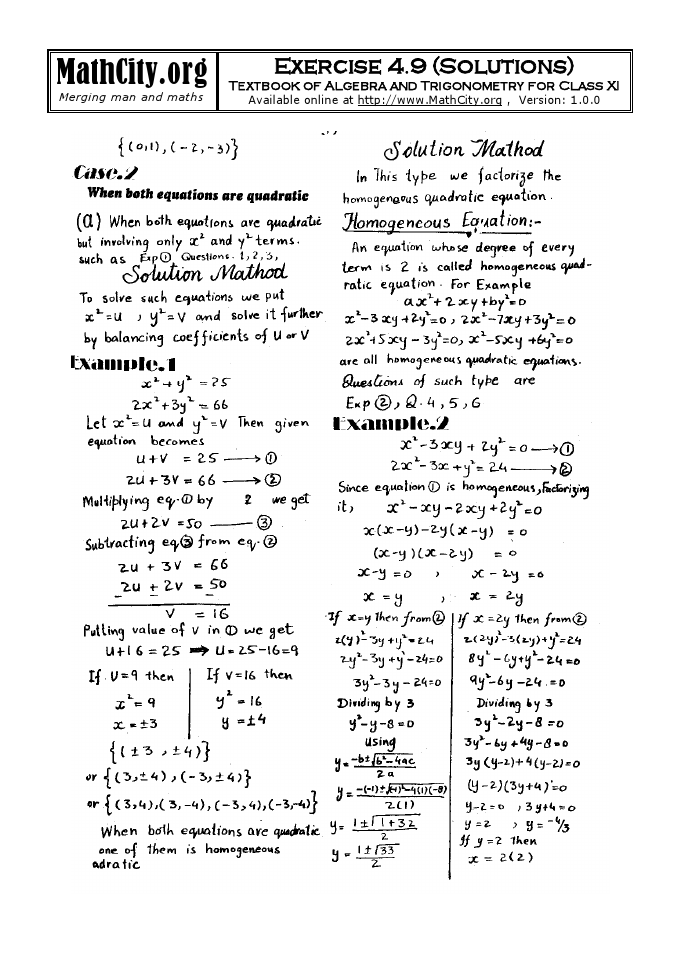 MathCity.org
Merging man and maths
Exercise 4.9 (Solutions)
Textbook of Algebra and Trigonometry for Class XI
Available online at http://www.MathCity.org , Version: 1.0.0
{(0,1),(-2,-3)}
Case.2
When both equations are quadratic
(a) When both equations are quadratic
but involving only x² and y² terms.
such as Exp① Questions. 1,2,3,
Solution Mathod
To solve such equations we put
x²=u , y²=v and solve it further
by balancing coefficients of u or v
Example.1
x²+y² = 25
2x²+3y² = 66
Let x²=u and y²=v Then given
equation becomes
u+v = 25 → ①
2u+3v = 66 → ②
Multiplying eq.① by 2 we get
2u+2v = 50 — ③
Subtracting eq③ from eq.②
2u + 3v = 66
2u + 2v = 50
- - -
v = 16
Putting value of v in ① we get
u+16 = 25 ⇒ u = 25-16=9
If U=9 then | If v=16 then
x²=9 | y²=16
x=±3 | y=±4
{(±3,±4)}
or {(3,±4),(-3,±4)}
or {(3,4),(3,-4),(-3,4),(-3,-4)}
When both equations are quadratic
one of them is homogeneous
adratic
Solution Mathod
In This type we factorize the
homogeneous quadratic equation.
Homogeneous Equation:-
An equation whose degree of every
term is 2 is called homogeneous quad-
ratic equation. For Example
ax²+2xy+by²=0
x²-3xy+2y²=0, 2x²-7xy+3y²=0
2x²+5xy-3y²=0, x²-5xy+6y²=0
are all homogeneous quadratic equations.
Questions of such type are
Exp ②, Q. 4, 5, 6
Example.2
x²-3xy+2y²=0 → ①
2x²-3x+y²=24 → ②
Since equation ① is homogeneous, Factorizing
it, x²-xy-2xy+2y²=0
x(x-y)-2y(x-y) = 0
(x-y)(x-2y) = 0
x-y=0 , x-2y=0
x = y , x = 2y
If x=y then from②
2(y)²-3y+y²=24
2y²-3y+y²-24=0
3y²-3y-24=0
Dividing by 3
y²-y-8=0
using
y=-b±√b²-4ac/2a
y=-(-1)±√(-1)²-4(1)(-8)/2(1)
y=1±√1+32/2
y=1±√33/2
If x=2y then from②
2(2y)²-3(2y)+y²=24
8y²-6y+y²-24=0
9y²-6y-24=0
Dividing by 3
3y²-2y-8=0
3y²-6y+4y-8=0
3y(y-2)+4(y-2)=0
(y-2)(3y+4)=0
y-2=0 , 3y+4=0
y=2 , y=-4/3
If y=2 then
x = 2(2)